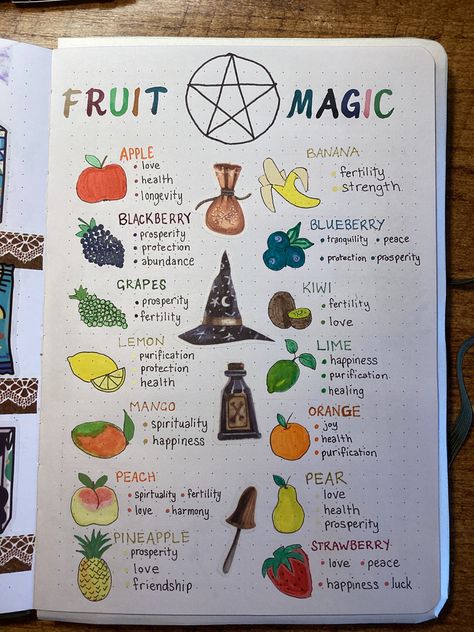 FRUIT MAGIC
APPLE
• love
• health
• longevity
BANANA
• fertility
• strength
BLACKBERRY
• prosperity
• protection
• abundance
BLUEBERRY
• tranquility • peace
• protection • prosperity
GRAPES
• prosperity
• fertility
KIWI
• fertility
• love
LEMON
• purification
• protection
• health
LIME
• happiness
• purification
• healing
MANGO
• spirituality
• happiness
ORANGE
• joy
• health
• purification
PEACH
• spirtuality • fertility
• love • harmony
PEAR
• love
• health
• prosperity
PINEAPPLE
• prosperity
• love
• friendship
STRAWBERRY
• love • peace
• happiness • luck